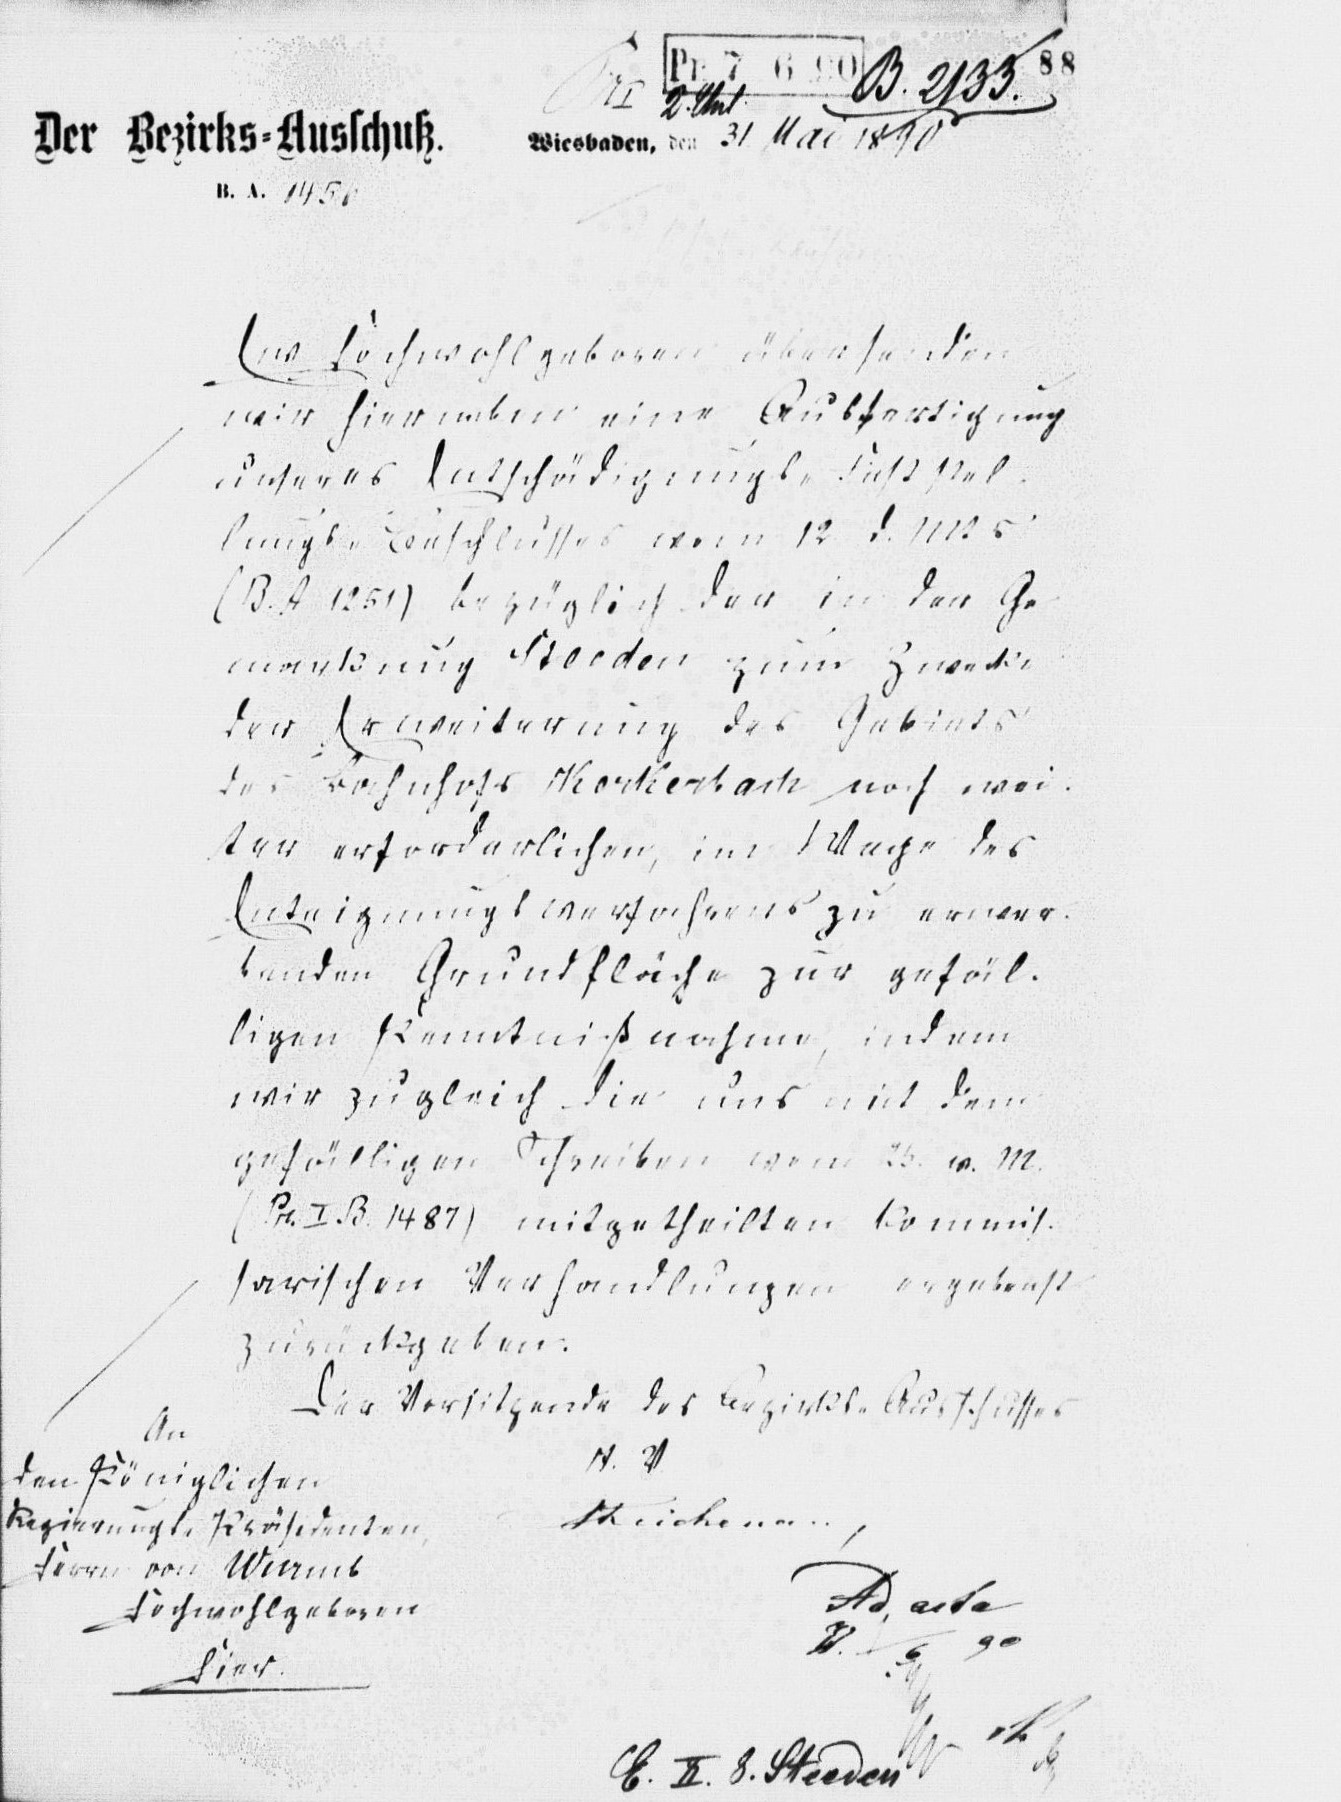 Pr. 7 6 90 B. 2133. 88
Pr I 2. Anl.
Der Bezirks=Ausschuß.
Wiesbaden, den 31 Mai 1890
B. A. 1456
Ew Hochwohlgeboren übersenden
wir hierneben eine Ausfertigung
unseres Entschädigungs-Feststel-
lungs-Beschlusses vom 12 d. Mts
(B. A 1251) bezüglich der in der Ge
markung Steeden zum Zwecke
der Erweiterung des Gebiets
des Bahnhofs Kerkerbach noch wei-
ter erforderlichen, im Wege des
Enteignungsverfahrens zu erwer-
benden Grundfläche zur gefäl-
ligen Kenntnißnahme, indem
wir zugleich die uns mit dem
gefälligen Schreiben vom 25. v. M.
(Pr. I. B. 1487) mitgetheilten kommis-
sarischen Verhandlungen ergebenst
zurückgeben.
Der Vorsitzende des Bezirks-Ausschusses
An
den Königlichen
Regierungs-Präsidenten,
Herrn von Wurmb
Hochwohlgeboren
Hier.
I. V.
Ad. acta
W. 6 90
C. II. 8. Steeden